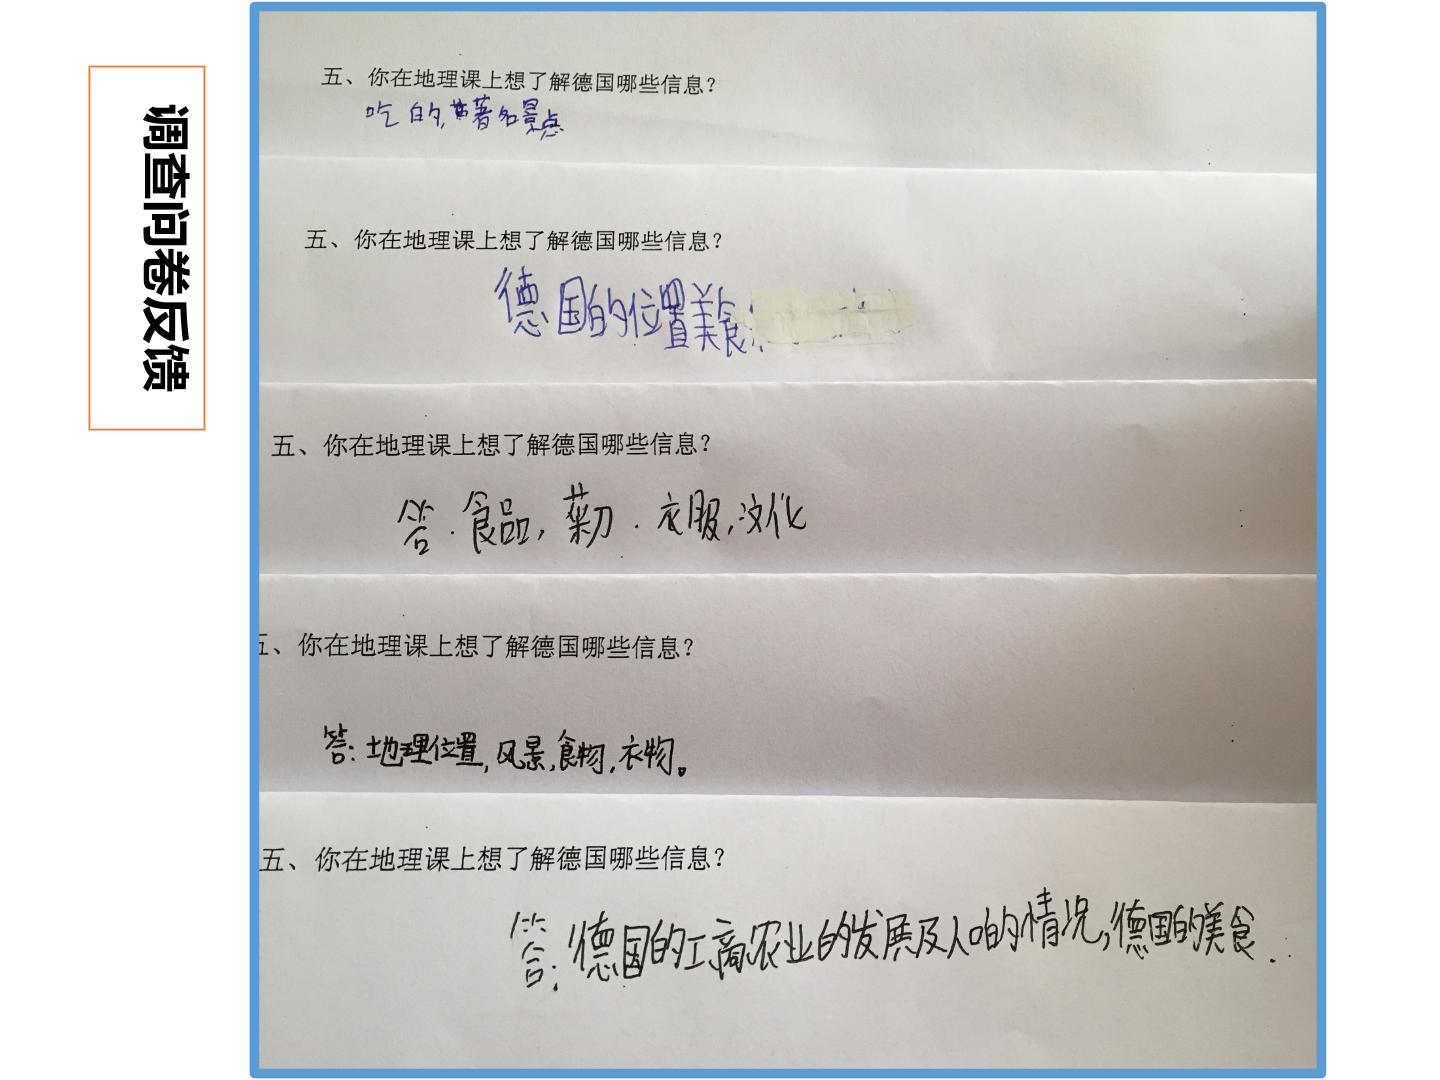 调查问卷反馈
五、你在地理课上想了解德国哪些信息？
吃的，著名景点
五、你在地理课上想了解德国哪些信息？
德国的位置美食
五、你在地理课上想了解德国哪些信息？
答．食品，．衣服，文化
五、你在地理课上想了解德国哪些信息？
答：地理位置，风景，食物，衣物。
五、你在地理课上想了解德国哪些信息？
答：德国的工商农业的发展及人口的情况，德国的美食．